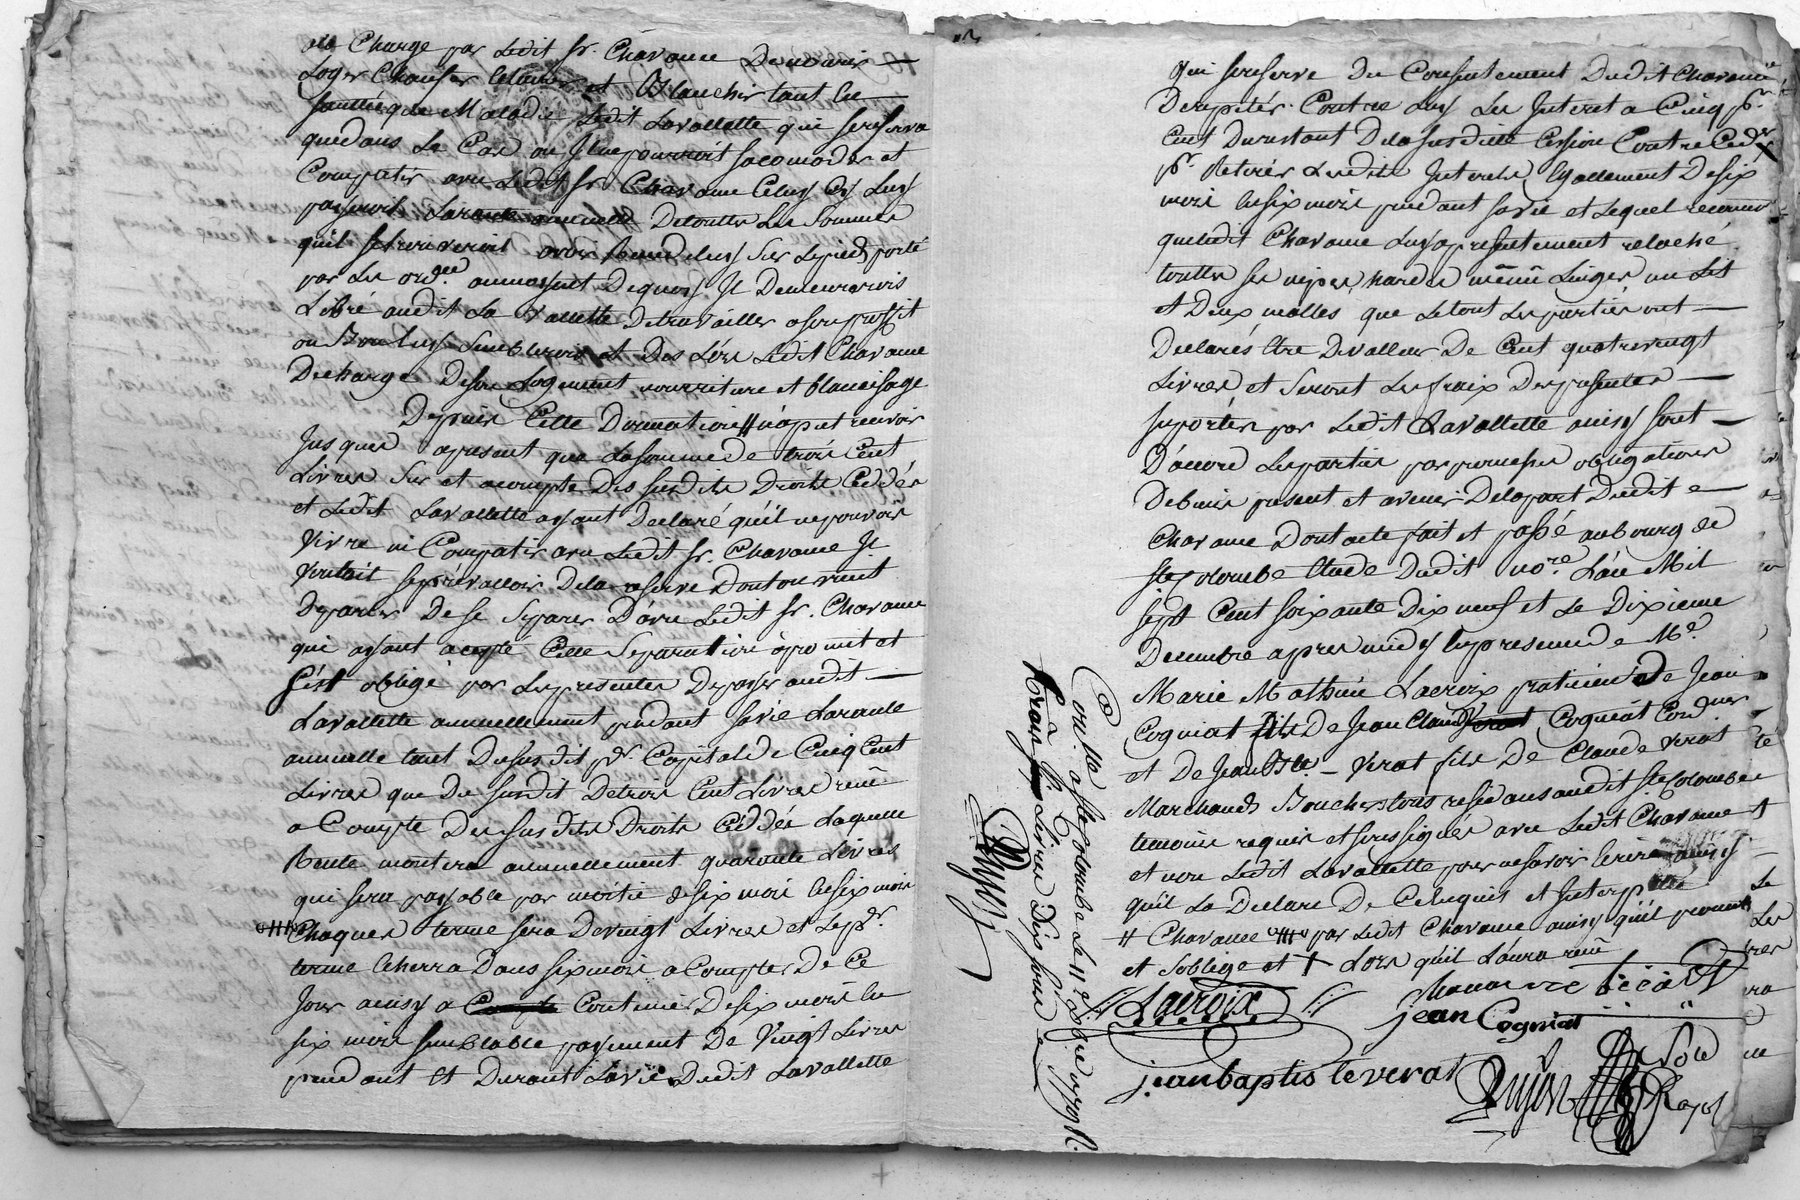 a la Charge par Ledit Sr. Chavanne De nourir
Loger Chaufer et Blanchir tant en
santée que Maladie Ledit Lavallette qui se reserva
que dans Le Cas ou Il ne pourroit sacomoder et
Compatir avec Ledit Sr. Chavanne Celuy Cy Luy
payeroit La rante annuelle De touttes Les Sommes
quil se trouveroit avoir Rendu luy Sur Le pied porté
par Les ord.ces au moyent Dequoy Il Demeureroit
Libré audit La Vallette De travailler a son proffit
ou Bon Luy Sembleroit et Des Lors Ledit Chavanne
Decharge De son Logement nourriture et blanchisage
Depuis Cette Donnation // n'a put recevoir
Jusques apresent que La somme De trois Cent
Livres Sur et acompte Des susdits Droits Ceddés
et Ledit Lavallette ayant Declaré qu'il ne pouvoit
Vivre ni Compatir avec Ledit Sr. Chavanne Il
Voulait se prévalloir De la reserve Dont on vient
De parler De se Separer D'avec Ledit Sr. Chavanne
qui ayant acepté Cette Separation à promit et
s'est obligé par Les presentes De payer audit
Lavallette annuellement pendant sa vie La rante
annuelle tant Du susdit pr. Capital de Cinq Cent
Livres que Du susdit De trois Cent Livres reçu
a Compte Des susdits Droits Ceddés Laquelle
Rente montera annuellement quarante Livres
qui sera payable par moitié de six mois en six mois
Chaques terme sera De vingt Livres et Le pr.
terme Echerra Dans six mois a Compter De Ce
Jour ainsy a Continuer De six mois en
six mois semblable payement De Vingt Livres
pendant Et Durant La vie Dudit Lavallette
qui se reserve Du Consentement Dudit Chavanne
De repeter Contre Luy Les Interet a Cinq pr.
Cent Du restant De la susditte Cession Contre
pr. Retirer Lesdits Interets Egallement De six
mois en six mois pendant sa vie et Lequel reconnoit
que Ledit Chavanne Luy a presentement relaché
touttes ses nipes, hardes même Linges un Lit
et Deux malles que Le tout Les parties ont
Declarés Etre De valleur De Cent quatrevingt
Livres et seront Les fraix Des presentes
suportés par Ledit Lavallette ainsy sont
D'accord Les parties par promesses obligations
De biens present et avenir De la part Dudit
Chavanne Dont acte fait et passé au bourg de
Ste Colombe Etude Dudit no.re L'an Mil
sept Cent soixante Dix neuf et Le Dixieme
Decembre apres midy En presence de Me.
Marie Mathieu Lacroix praticien De Jean
Cogniat fils De Jean Claude Cogniat Cordonier
et De Jean Bte. Verat fils De Claude Verat
Marchands Bouchers tous residans audit Ste Colombe
temoins requis et soussignés avec Ledit Chavanne
et non Ledit Lavallette pour ne savoir Ecrire ainsy
qu'il La Declaré De Ce Enquis et Interpellé
// Chavanne par Ledit Chavanne ainsy qu'il promet
et s'oblige et † Lors qu'il L'aura reçu
Lacroix
Chavanne
jean Cogniat
jean baptis te verat
Dujon
Con.lle a Ste Colombe Le 11e
Reçu Livres Dix sous
Dujon